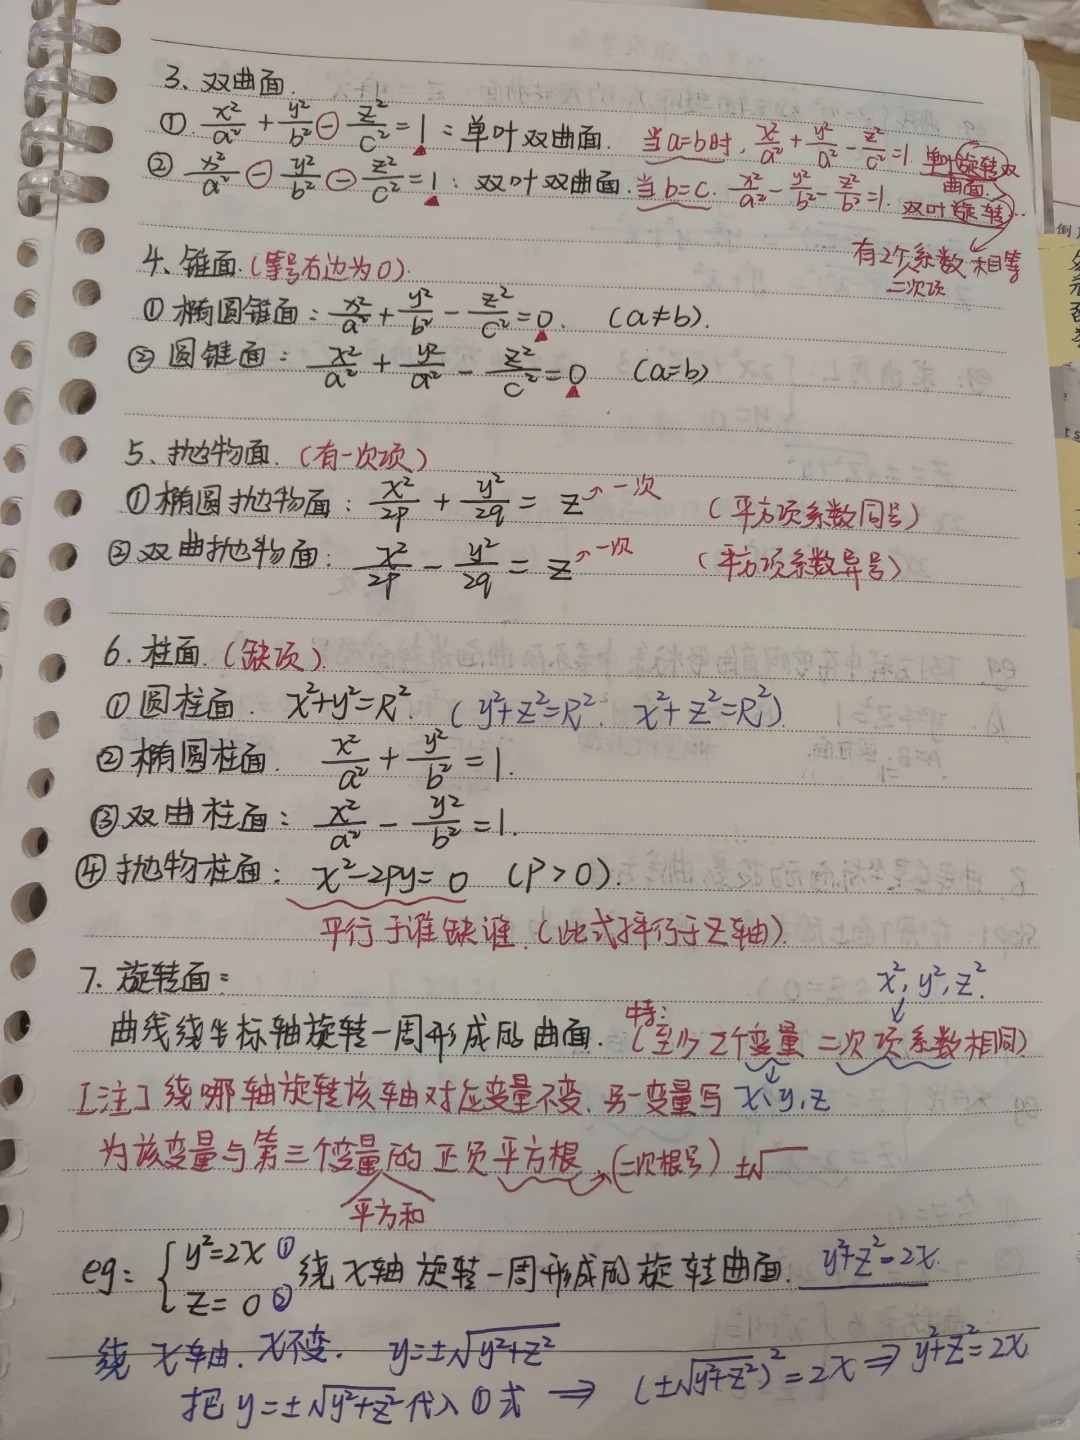 3、双曲面.
① x²/a² + y²/b² - z²/c² = 1：单叶双曲面. 当a=b时, x²/a² + y²/a² - z²/c² = 1. 单叶旋转双曲面.
② x²/a² - y²/b² - z²/c² = 1：双叶双曲面. 当b=c. x²/a² - y²/b² - z²/b² = 1. 双叶旋转…
有2个系数相等
二次项
4、锥面.(等号右边为0).
① 椭圆锥面：x²/a² + y²/b² - z²/c² = 0. (a≠b).
② 圆锥面：x²/a² + y²/a² - z²/c² = 0 (a=b)
5、抛物面.(有一次项)
① 椭圆抛物面：x²/2p + y²/2q = z → 一次 (平方项系数同号)
② 双曲抛物面：x²/2p - y²/2q = z → 一次 (平方项系数异号)
6.柱面.(缺项)
① 圆柱面. x²+y²=R². (y²+z²=R². x²+z²=R²).
② 椭圆柱面. x²/a² + y²/b² = 1.
③ 双曲柱面：x²/a² - y²/b² = 1.
④ 抛物柱面：x²-2py=0 (P>0).
平行于谁缺谁.(此式平行于z轴).
7.旋转面：
x², y², z².
曲线绕坐标轴旋转一周形成的曲面. 特：(至少2个变量二次项系数相同)
[注]绕哪轴旋转该轴对应变量不变.另一变量写 x、y、z
为该变量与第三个变量的正负平方根 (二次根号) ±√
平方和
eg：{ y²=2x ①
z=0 ② 绕x轴旋转一周形成的旋转曲面. y²+z²=2x.
绕x轴. x不变. y=±√(y²+z²)
把y=±√(y²+z²)代入①式 ⇒ (±√(y²+z²))²=2x ⇒ y²+z²=2x